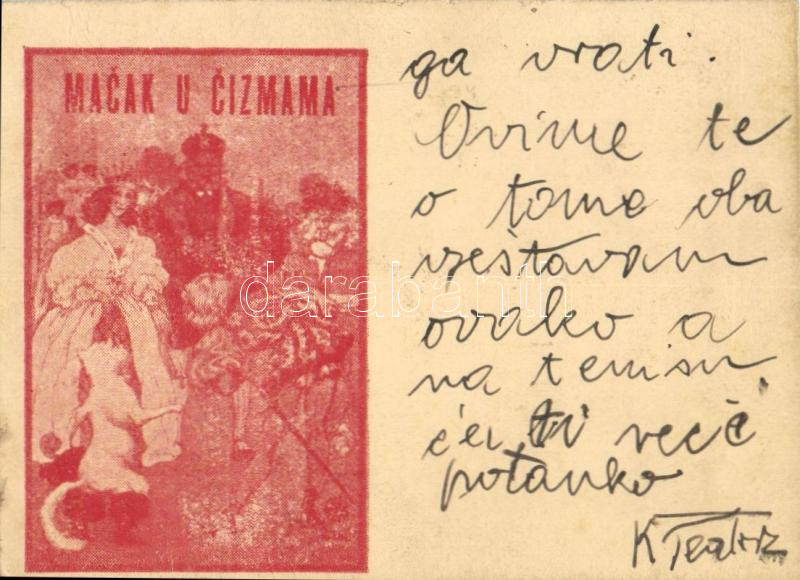 MAČAK U ČIZMAMA
ga vrati.
Ovime te
o tome oba
vještavam
ovako a
na tenisu
ću ti reći
potanko
K
darabanth